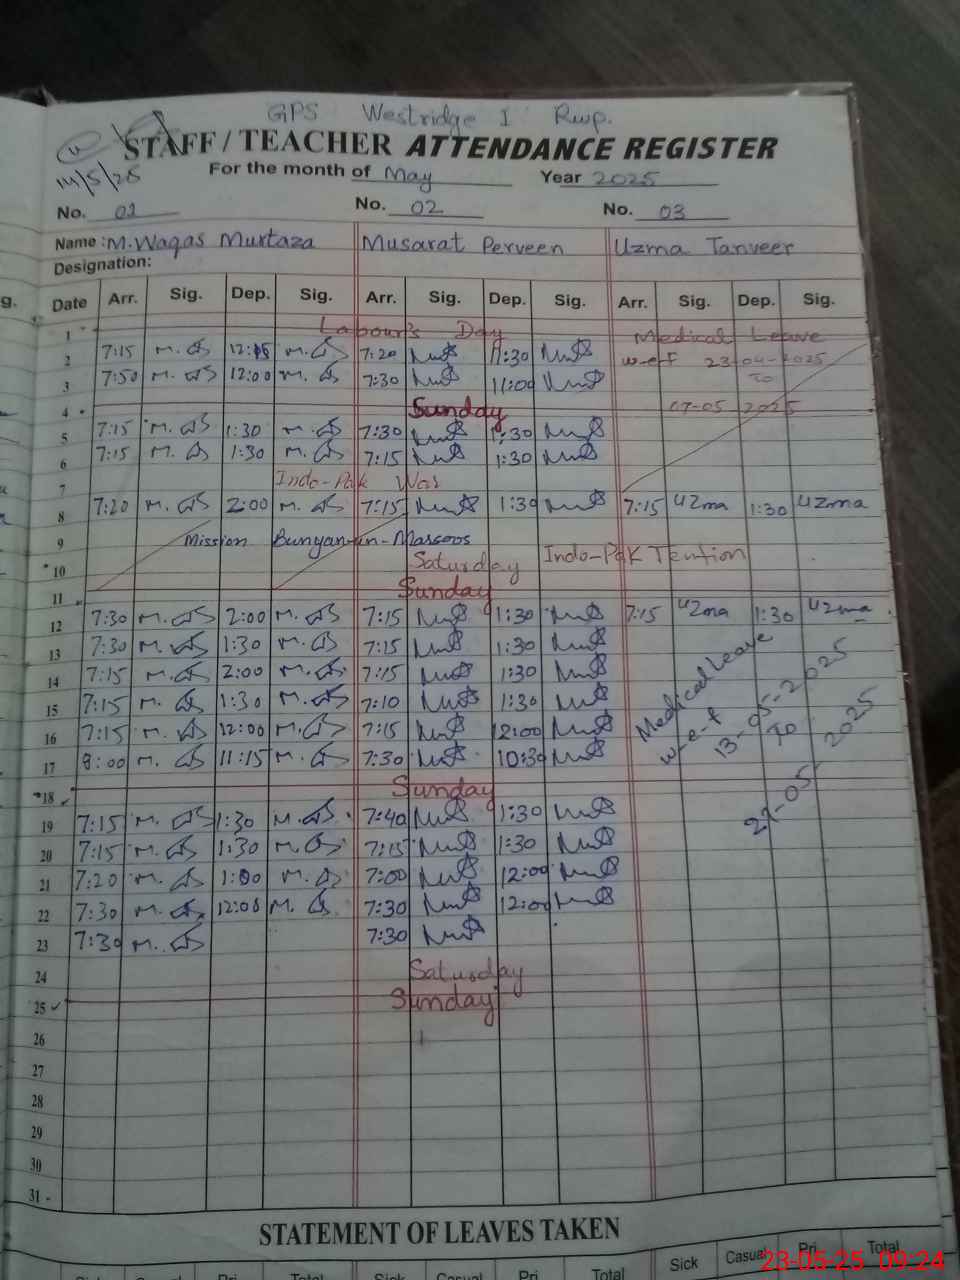 GPS Westridge I Rwp.
STAFF / TEACHER ATTENDANCE REGISTER
14/5/25
For the month of May Year 2025
No. 01 No. 02 No. 03
Name : M. Waqas Murtaza Musarat Perveen Uzma Tanveer
Designation:
Date Arr. Sig. Dep. Sig. Arr. Sig. Dep. Sig. Arr. Sig. Dep. Sig.
1 Labour's Day Medical Leave
2 7:15 12:15 7:20 11:30 w-e-f 23-04-2025
3 7:50 12:00 7:30 11:00 To
4 Sunday 07-05 2025
5 7:15 1:30 7:30 1:30
6 7:15 1:30 7:15 1:30
7 Indo-Pak War
8 7:20 2:00 7:15 1:30 7:15 Uzma 1:30 Uzma
9 Mission Bunyan-un-Marsoos
10 Saturday Indo-Pak Tention
11 Sunday
12 7:30 2:00 7:15 1:30 7:15 Uzma 1:30 Uzma
13 7:30 1:30 7:15 1:30
14 7:15 2:00 7:15 1:30
15 7:15 1:30 7:10 1:30
16 7:15 12:00 7:15 12:00
17 8:00 11:15 7:30 10:30
Medical Leave
w-e-f 13-05-2025
To
27-05 2025
18 Sunday
19 7:15 1:30 7:40 1:30
20 7:15 1:30 7:15 1:30
21 7:20 1:00 7:00 12:00
22 7:30 12:08 7:30 12:00
23 7:30 7:30
24 Saturday
25 Sunday
26
27
28
29
30
31
STATEMENT OF LEAVES TAKEN
Sick Casual Pri. Total Sick Casual Pri. Total Sick Casual Pri. Total
23-05-25 09:24